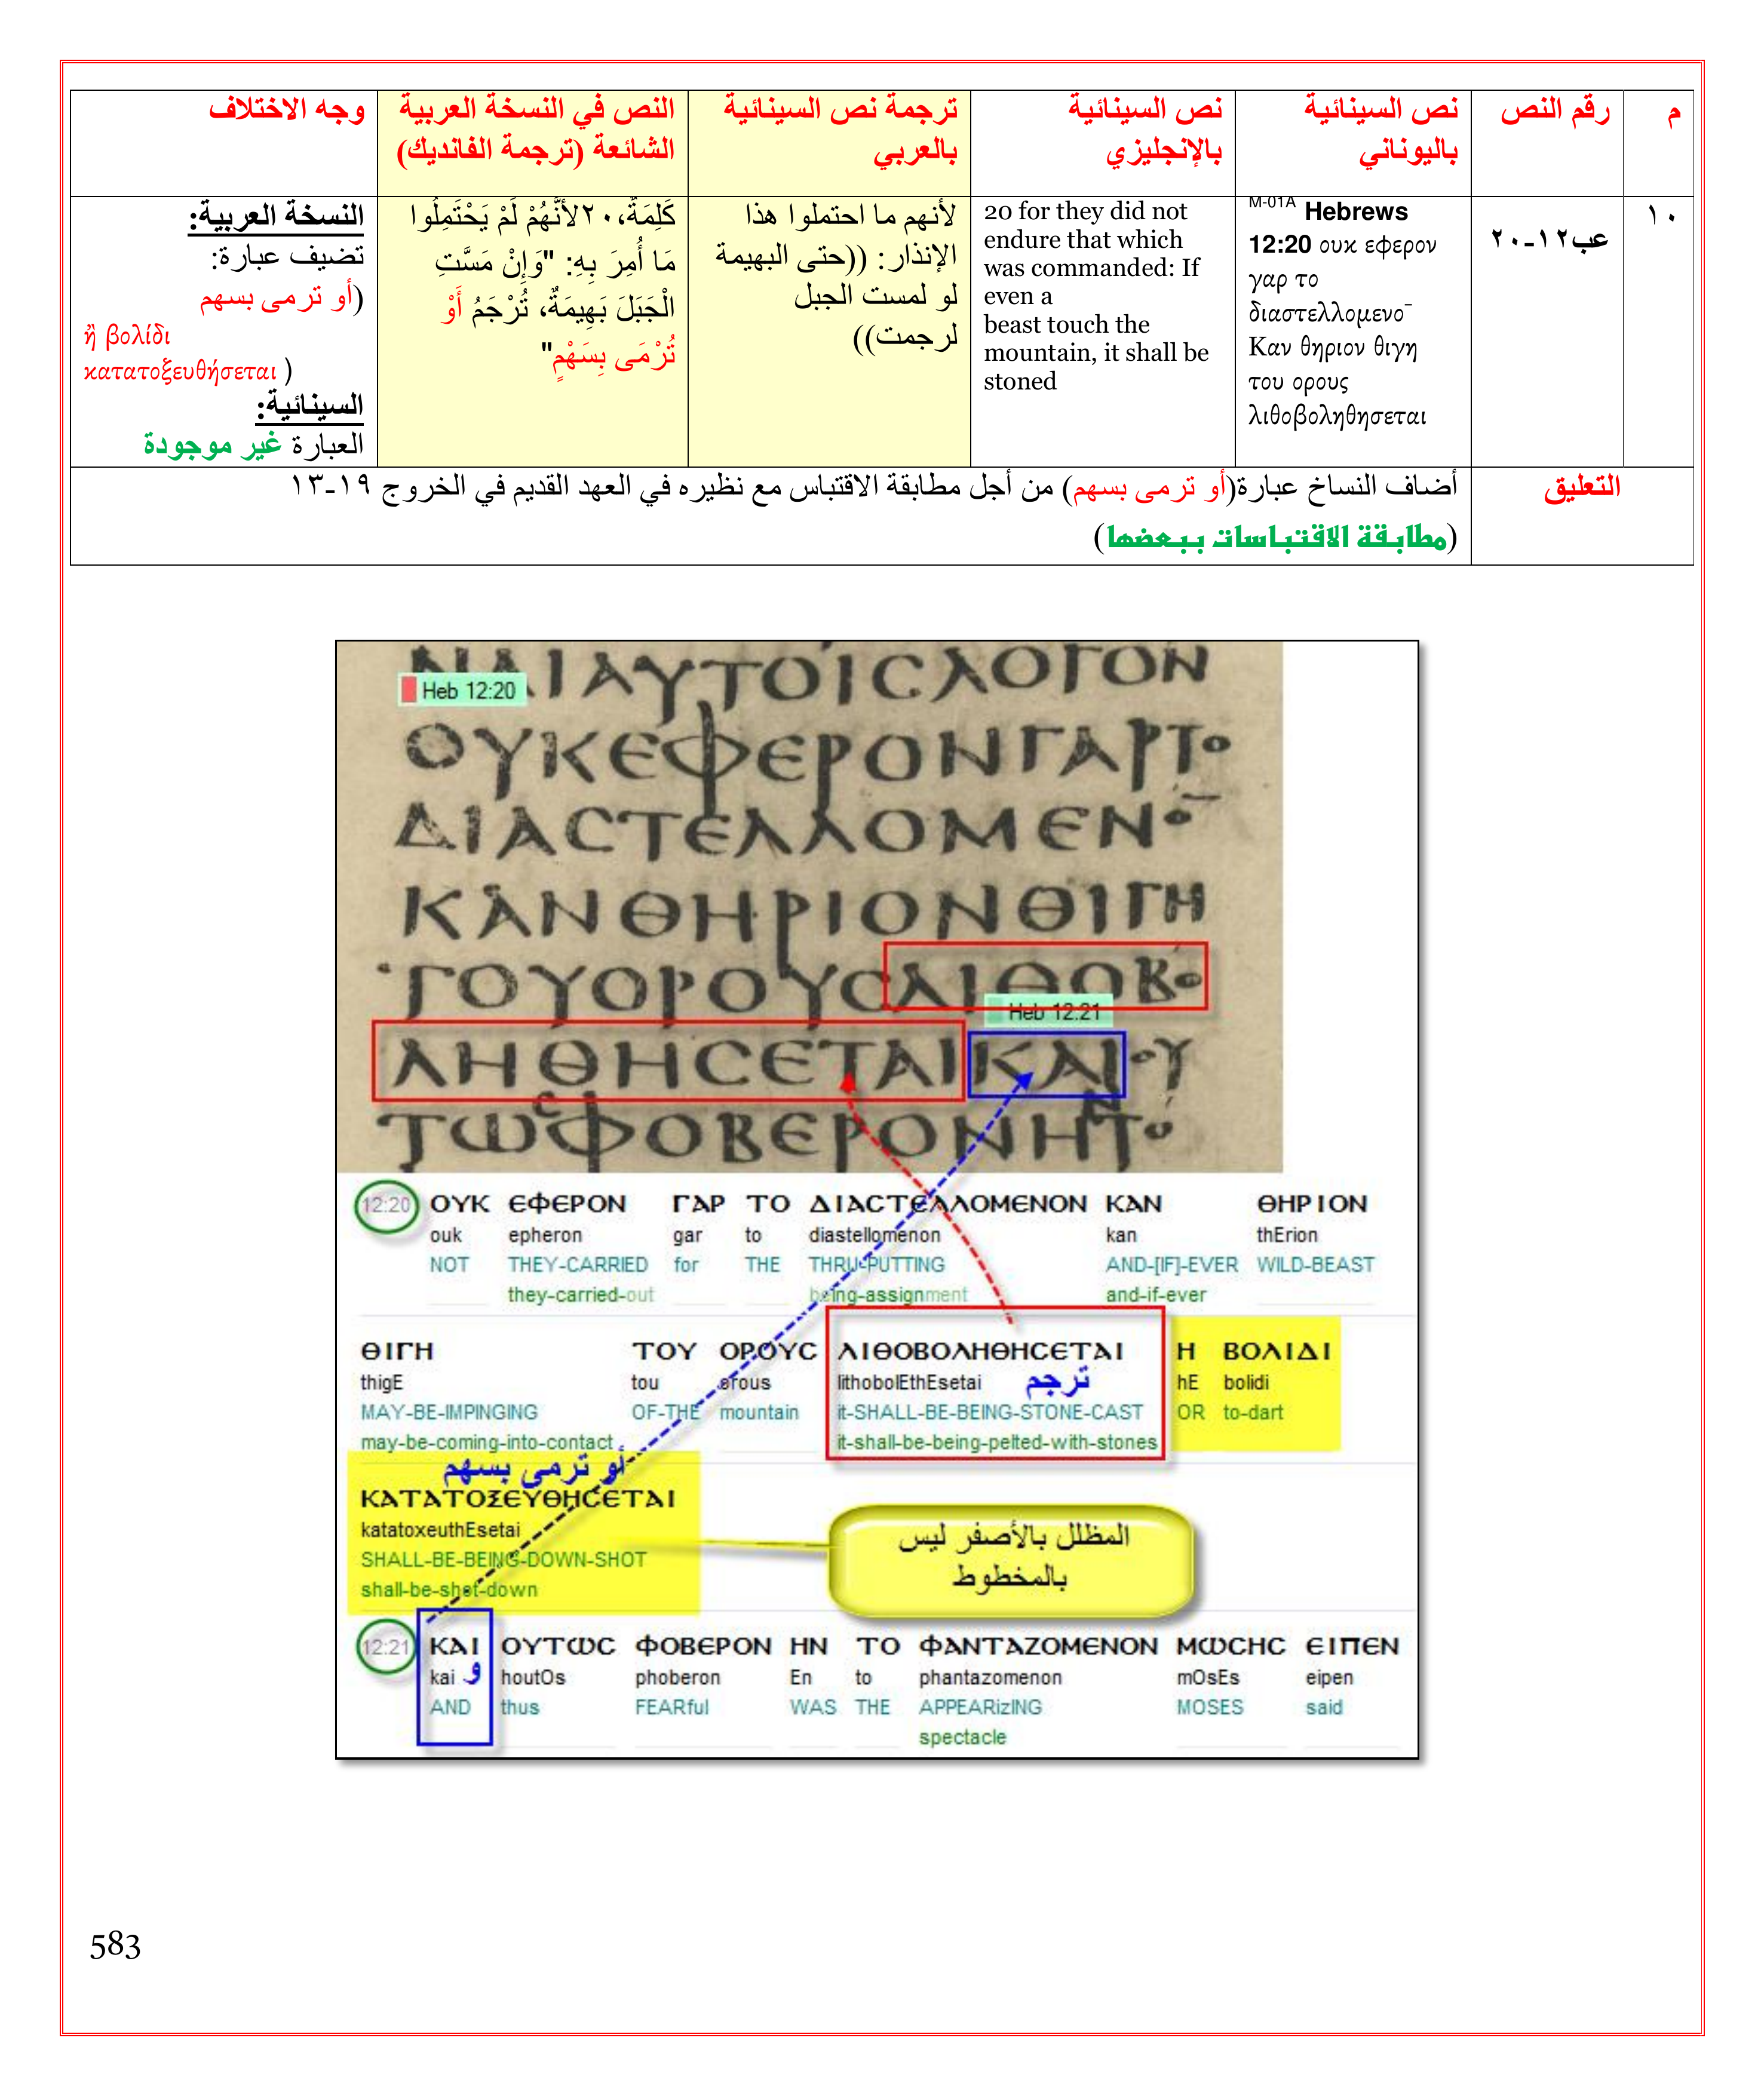 م
رقم النص
نص السينائية
باليوناني
نص السينائية
بالإنجليزي
ترجمة نص السينائية
بالعربي
النص في النسخة العربية
الشائعة (ترجمة الفانديك)
وجه الاختلاف
١٠
عب١٢-٢٠
M-01A Hebrews
12:20 ουκ εφερον
γαρ το
διαστελλομενο¯
Καν θηριον θιγη
του ορους
λιθοβοληθησεται
20 for they did not
endure that which
was commanded: If
even a
beast touch the
mountain, it shall be
stoned
لأنهم ما احتملوا هذا
الإنذار: ((حتى البهيمة
لو لمست الجبل
لرجمت))
كَلِمَةٌ، ٢٠لأَنَّهُمْ لَمْ يَحْتَمِلُوا
مَا أُمِرَ بِهِ: "وَإِنْ مَسَّتِ
الْجَبَلَ بَهِيمَةٌ، تُرْجَمُ أَوْ
تُرْمَى بِسَهْمٍ"
النسخة العربية:
تضيف عبارة:
(أو ترمى بسهم
ἢ βολίδι
κατατοξευθήσεται )
السينائية:
العبارة غير موجودة
التعليق
أضاف النساخ عبارة(أو ترمى بسهم) من أجل مطابقة الاقتباس مع نظيره في العهد القديم في الخروج ١٩-١٣
(مطابقة الاقتباسات ببعضها)
ΑΙΑΥΤΟΙCΛΟΓΟΝ
Heb 12:20
ΟΥΚΕΦΕΡΟΝΓΑΡΤΟ
ΔΙΑCΤΕΛΛΟΜΕΝΟ¯
ΚΑΝΘΗΡΙΟΝΘΙΓΗ
ΤΟΥΟΡΟΥCΛΙΘΟΒΟ
Heb 12:21
ΛΗΘΗCΕΤΑΙΚΑΙΟΥ
ΤΩCΦΟΒΕΡΟΝΗΝΤΟ
12:20 ΟΥΚ ΕΦΕΡΟΝ ΓΑΡ ΤΟ ΔΙΑCΤΕΛΛΟΜΕΝΟΝ ΚΑΝ ΘΗΡΙΟΝ
ouk epheron gar to diastellomenon kan thErion
NOT THEY-CARRIED for THE THRU-PUTTING AND-[IF]-EVER WILD-BEAST
they-carried-out being-assignment and-if-ever
ΘΙΓΗ ΤΟΥ ΟΡΟΥC ΛΙΘΟΒΟΛΗΘΗCΕΤΑΙ Η ΒΟΛΙΔΙ
thigE tou orous lithobolEthEsetai ترجم hE bolidi
MAY-BE-IMPINGING OF-THE mountain it-SHALL-BE-BEING-STONE-CAST OR to-dart
may-be-coming-into-contact it-shall-be-being-pelted-with-stones
أو ترمى بسهم
ΚΑΤΑΤΟΞΕΥΘΗCΕΤΑΙ
katatoxeuthEsetai
SHALL-BE-BEING-DOWN-SHOT
shall-be-shot-down
المظلل بالأصفر ليس
بالمخطوط
12:21 ΚΑΙ ΟΥΤΩC ΦΟΒΕΡΟΝ ΗΝ ΤΟ ΦΑΝΤΑΖΟΜΕΝΟΝ ΜΩCΗC ΕΙΠΕΝ
kai و houtOs phoberon En to phantazomenon mOsEs eipen
AND thus FEARful WAS THE APPEARizING MOSES said
spectacle
583